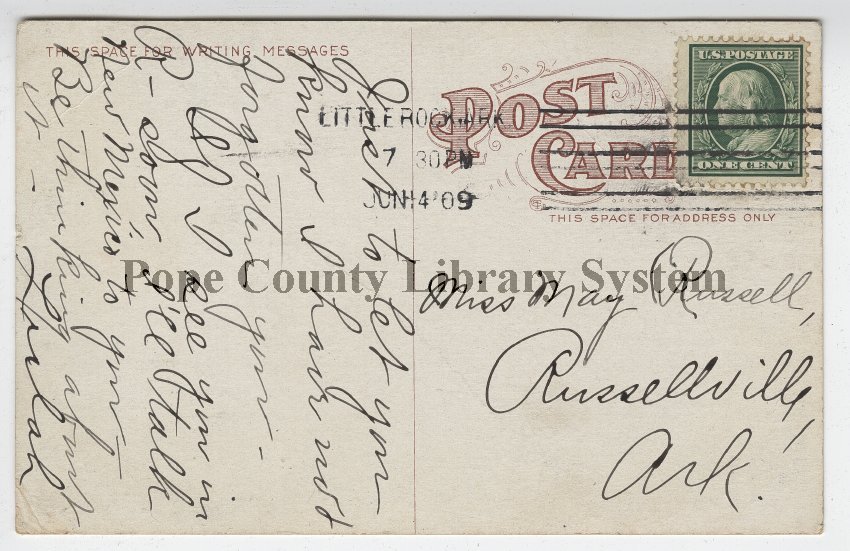 THIS SPACE FOR WRITING MESSAGES
Just to let you
know I have not
forgotten you -
If I see you in
R- soon, I'll talk
New Mexico to you -
Be thinking about
it -
POST
CARD
THIS SPACE FOR ADDRESS ONLY
U.S. POSTAGE
ONE CENT
LITTLE ROCK, ARK
7 30 PM
JUN 14 '09
Miss May Russell,
Russellville,
Ark.
Pope County Library System